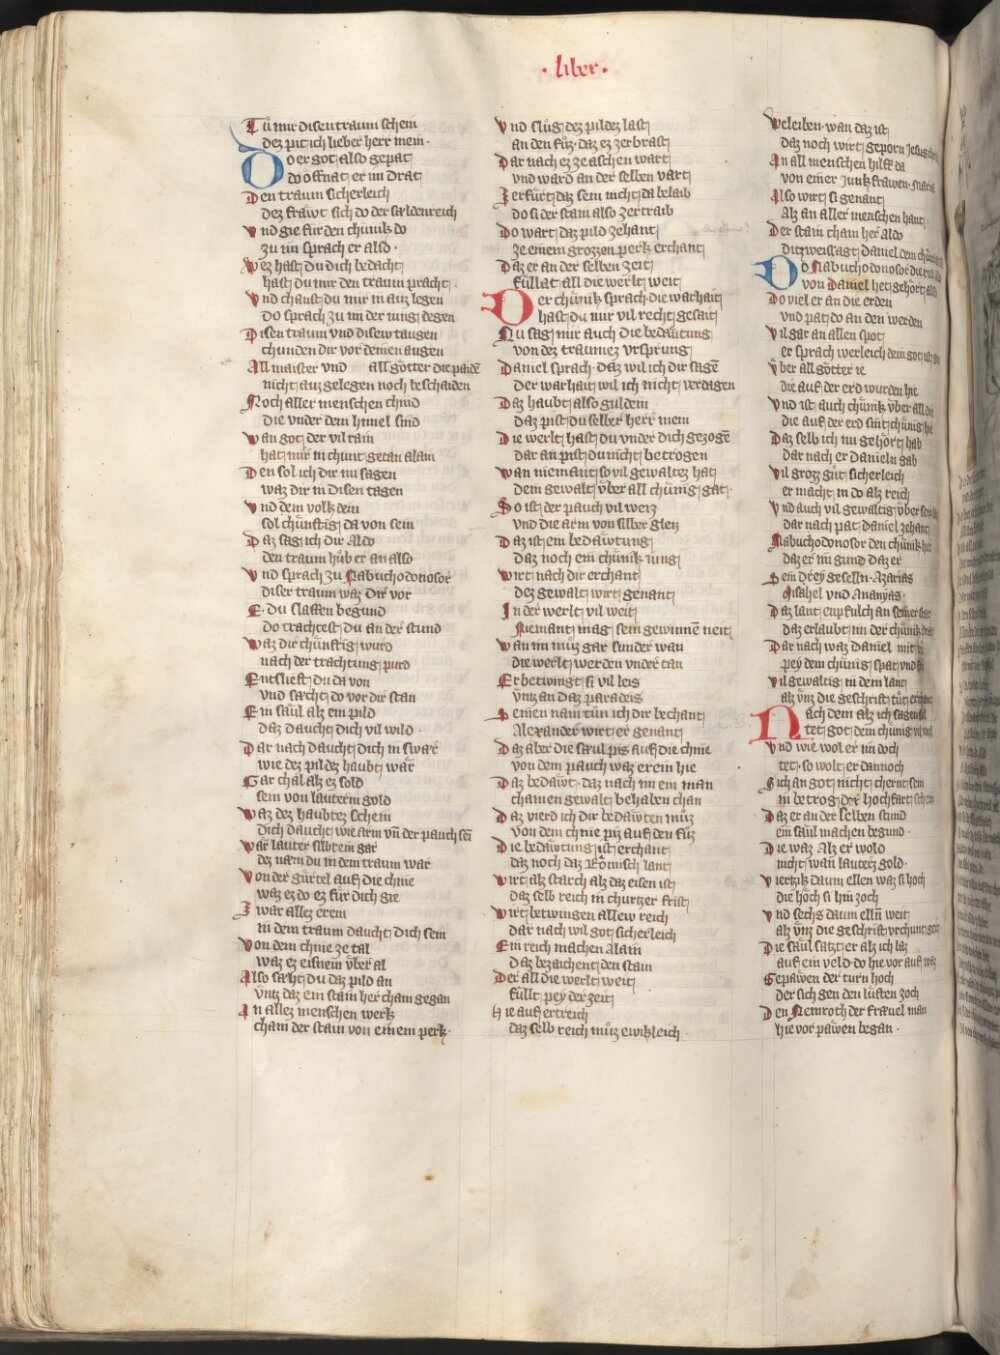 · liber ·
Tů mir disen traum schein
dez pit ich lieber herr mein ·
Do er got also gepat
do offnat er im drat
Den traum sicherleich
dez fräwt sich do der sældenreich
Vnd gie für den chünik do
zu im sprach er also ·
Wez hast du dich bedacht
hast du mir den traum pracht ·
Vnd chanst du mir in auz legen
do sprach zu im der iung degen
Disen traum vnd disew taugen
chunden dir vor deinen augen
All maister vnd all götter die paidē
nicht auz gelegen noch beschaiden
Noch aller menschen chind
die vnder dem himel sind
Wan got der vil rain
hat mir in chunt getan alain
Den sol ich dir nu sagen
waz dir in disen tagen
Vnd dem volk dein
sol chünftig da von sein
Daz sag ich dir Aldo
den traum hůb er an also
Vnd sprach zu Nabuchodonosor
diser traum waz dir vor
E · du slaffen begund
do trachtest du an der stund
Waz dir chünftig wurd
nach der trachtung purd
Entslieft du da von
vnd sæcht do vor dir stan
Ein säul alz ein pild
daz daucht dich vil wild ·
Dar nach daucht dich in swar
wie dez pildez haubt wär
Gar chal alz ez sold
sein von lauterm gold
Waz dez haubtez schein
dich daucht wie arm vn̄ der pauch sei
War lauter silbrein gar
dez nam du in dem traum war
Von der gürtel auf die chnie
waz ez do ez für dich gie
Z war allez erein
in dem traum daucht dich sein
Von dem chnie ze tal
waz ez eisnein vber al
Also sæht du daz pild an
vntz daz ein stain her cham gegan
An allez menschen werk
cham der stain von einem perk ·
Vnd slůg dez pildez last
an den fůz · daz ez zerbrast
Dar nach ez ze aschen wart
vnd ward an der selben vart
Zerfürt daz sein nicht da belaib
do si der stain also zertraib
Do wart daz pild zehant
ze einem grozzen perk erchant
Daz er an der selben zeit
füllat all die werlt weit
Der chünik sprach die warhait
hast du mir vil recht gesait
Nu sag mir auch die bedäutung
von dez traumez vrsprung
Daniel sprach · daz wil ich dir sagē
der warhait wil ich nicht verdagen
Daz haubt also guldein
daz pist du selber herr mein
Die werlt hast du vnder dich gezogē
dar an pist du nicht betrogen
Wan niemant so vil gewaltez hat
dein gewalt vber all chünig gat ·
So ist der pauch vil weiz
vnd die arm von silber gleiz
Daz ist ein bedäwtung
daz noch ein chünik iung
Wirt nach dir erchant
dez gewalt wirt genant
In der werlt vil weit
Niemant mag sein gewinnē neit
Wan im můz gar sunder wan
die werlt werden vnder tan
Er betwingt si vil leis
vntz an daz paradeis
Seinen nam tůn ich dir bechant
Alexander wirt er genant
Daz aber die säul pis auf die chnie
von dem pauch waz erein hie
Daz bedäwt · daz nach im ein man
chainen gewalt behaben chan
Daz vierd ich dir bedäwten můz
von dem chnie piz auf den fůz
Die bedäwtung ist erchant
daz noch daz Römisch lant
Wirt alz starch alz daz eisen ist
daz selb reich in churtzer frist
Wirt betwingen allew reich
dar nach wil got sicherleich
Ein reich machen Alain
daz bezaichent den stain
Der all die werlt weit
füllt pey der zeit
Hie auf ertreich
daz selb reich můz ewikleich
Weleiben · wan daz ist
daz noch wirt geporn Jesus
An all menschen hilff da
von einer Junkfrawen · Maria
Also wirt si genant
Alz an aller menschen hant
Der stain cham her aldo
ditz weissagt daniel dem
Do Nabuchodonosor die red
von Daniel het gehört
Do viel er an die erden
vnd pat do an den werden
Vil gar an allen spot
er sprach werleich dein got
Vber all götter ie
die auf der erd wurden hie
Vnd ist auch chünik vber all die
die auf der erd sint chünig hie
Daz selb ich nu gehört hab
dar nach er Danieln gab
Vil groz gůt sicherleich
er macht in do alz reich
Vnd auch vil gewaltig vber
dar nach pat daniel zehant
Nabuchodonosor den chünik her
daz er im gund daz er
Sein drey geselln · Azarias
Misahel vnd Ananyas ·
Daz lant enpfulch an seiner stat
daz erlaubt im der chünik
Dar nach waz daniel mit
pey dem chünig spat vnd
Vil gewaltig in dem lant
alz vns die geschrift tůt
Nach dem alz ich sagen
tet got dem chünig vil
Vnd wie wol er im doch
tet · so wolt er dannoch
Sich an got nicht chern sein
in betrog der hochfart schein
Daz er an der selben stund
ein säul machen begund ·
Die waz Alz er wold
nicht wan lauterz gold ·
Viertzik daum ellen waz si hoch
die höch si hin zoch
Vnd sechs daum elln weit
alz vns die geschrift vrchunt
Die säul satzt er alz ich laz
auf ein veld · do hie vor auf waz
Gepawen der turn hoch
der sich gen den lüften zoch
Den Nemroth der fräuel man
hie vor pawen began ·